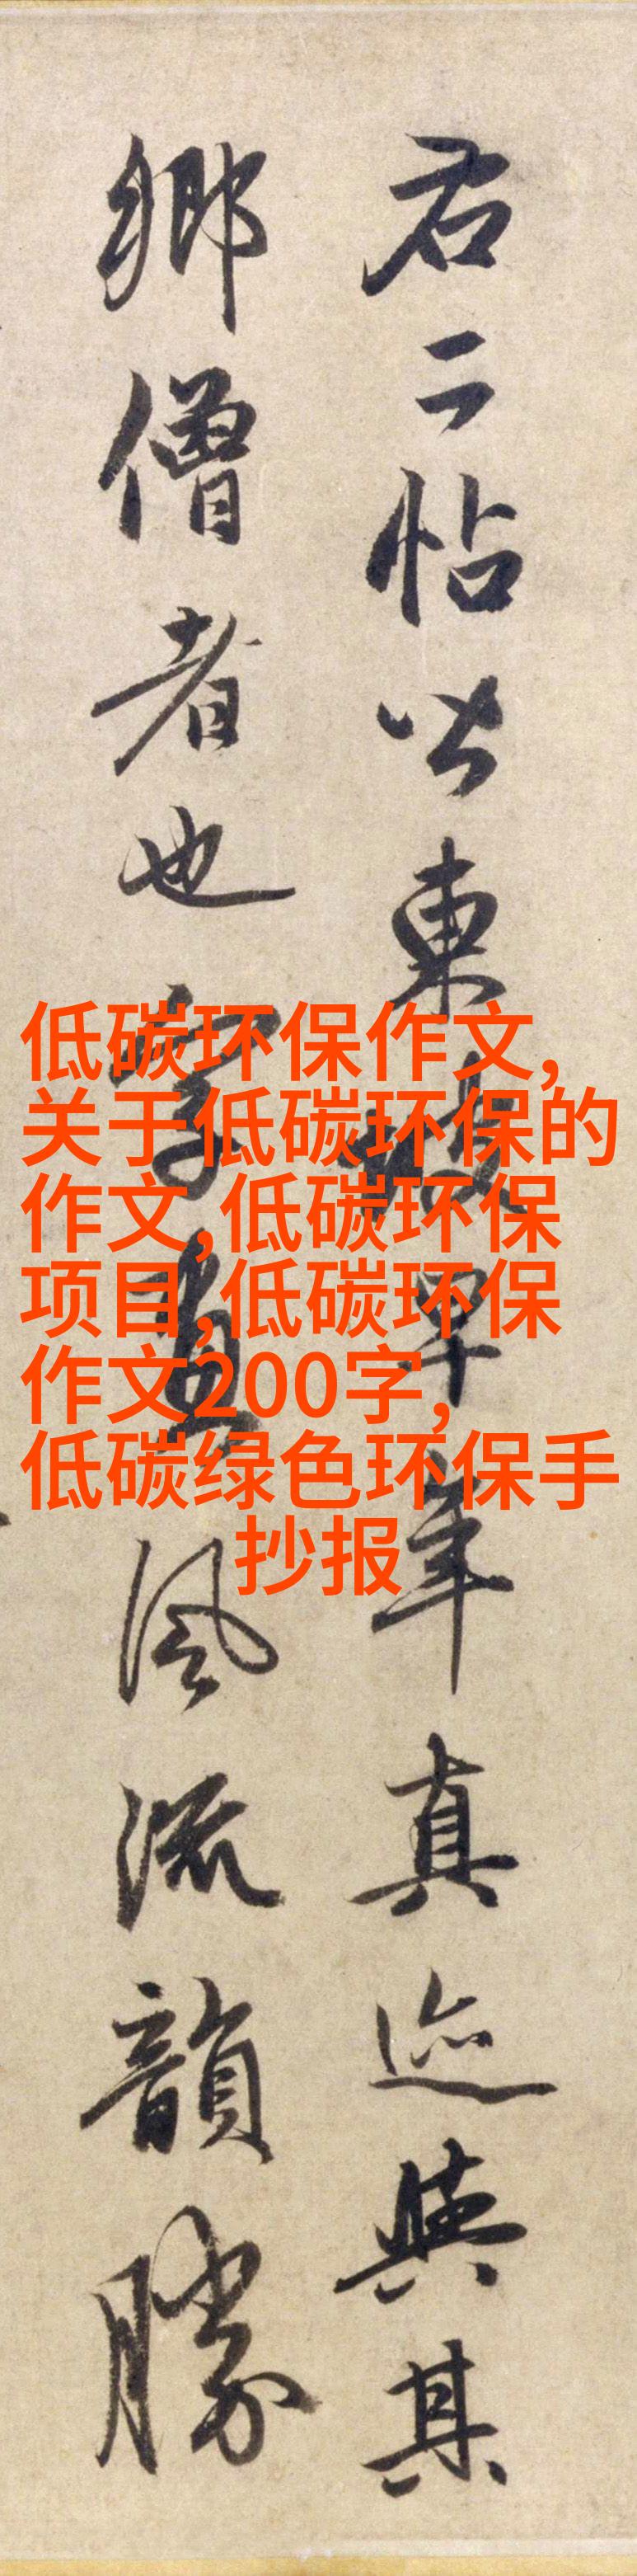 右二帖皆東坡早年真迹與其
鄉僧者也字畫風流韻勝
低碳环保作文,
关于低碳环保的
作文,低碳环保
项目,低碳环保
作文200字,
低碳绿色环保手
抄报